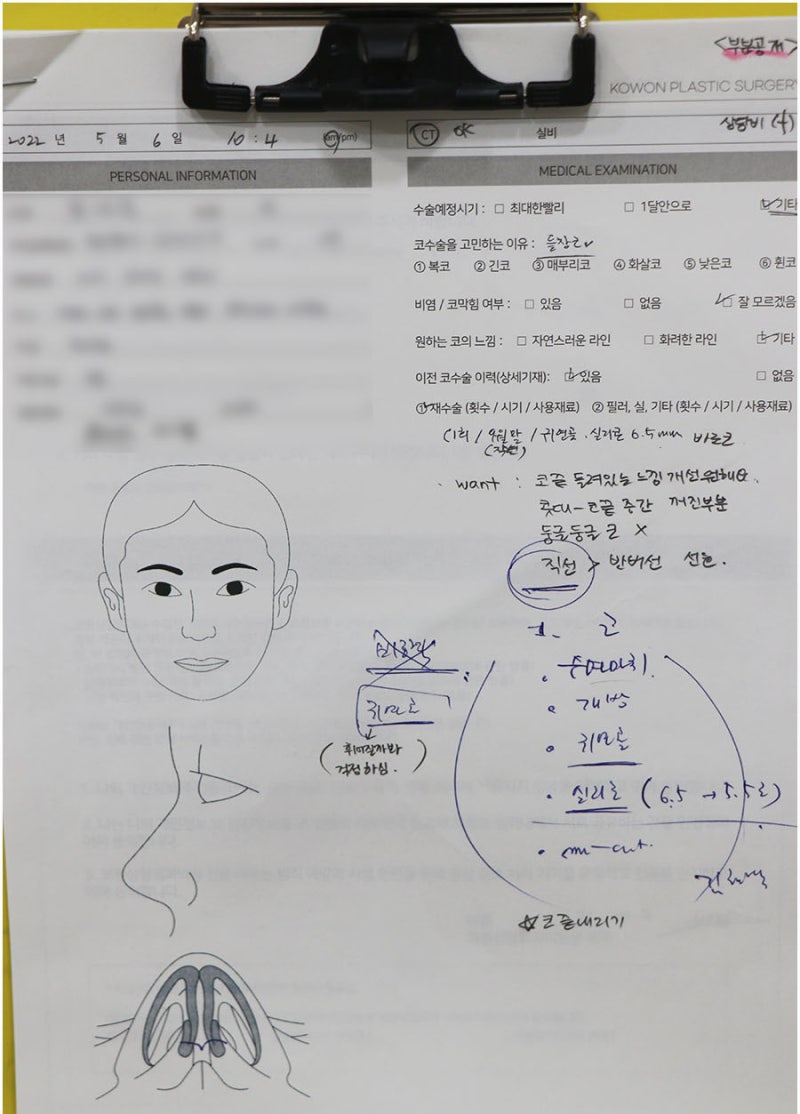 <부분공개>
KOWON PLASTIC SURGERY
2022 년 5 월 6 일 10 : 4 (am/pm)
CT OK 실비 상담비 (+)
PERSONAL INFORMATION
MEDICAL EXAMINATION
수술예정시기 : □ 최대한빨리 □ 1달안으로 □ 기타
코수술을 고민하는 이유 : 들창코
① 복코 ② 긴코 ③ 매부리코 ④ 화살코 ⑤ 낮은코 ⑥ 휜코
비염 / 코막힘 여부 : □ 있음 □ 없음 □ 잘 모르겠음
원하는 코의 느낌 : □ 자연스러운 라인 □ 화려한 라인 □ 기타
이전 코수술 이력(상세기재) : □ 있음 □ 없음
① 재수술 (횟수 / 시기 / 사용재료) ② 필러, 실, 기타 (횟수 / 시기 / 사용재료)
(1회 / 9월말 / 귀연골, 실리콘 6.5mm 바로코
(작년)
want : 코끝 들려있는 느낌 개선원해요.
콧대-코끝 중간 꺼진부분
둥글둥글 코 X
직선 > 반버선 선호.
코
개방
귀연골
귀연골
(휘어질까봐
걱정하심.)
실리콘 (6.5 → 5.5로)
코끝내리기